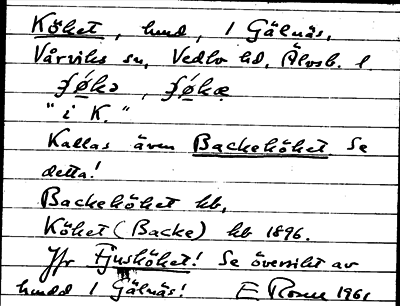 Köket, hmd, i Gälnäs,
Vårviks sn, Vedbo hd, Älvsb. l.
"i K."
Kallas även Backeköket Se
detta!
Backeköket kb,
Köket (Backe) kb 1896.
Jfr Fjusköket! Se översikt av
hmdd i Gälnäs! E Rosell 1961